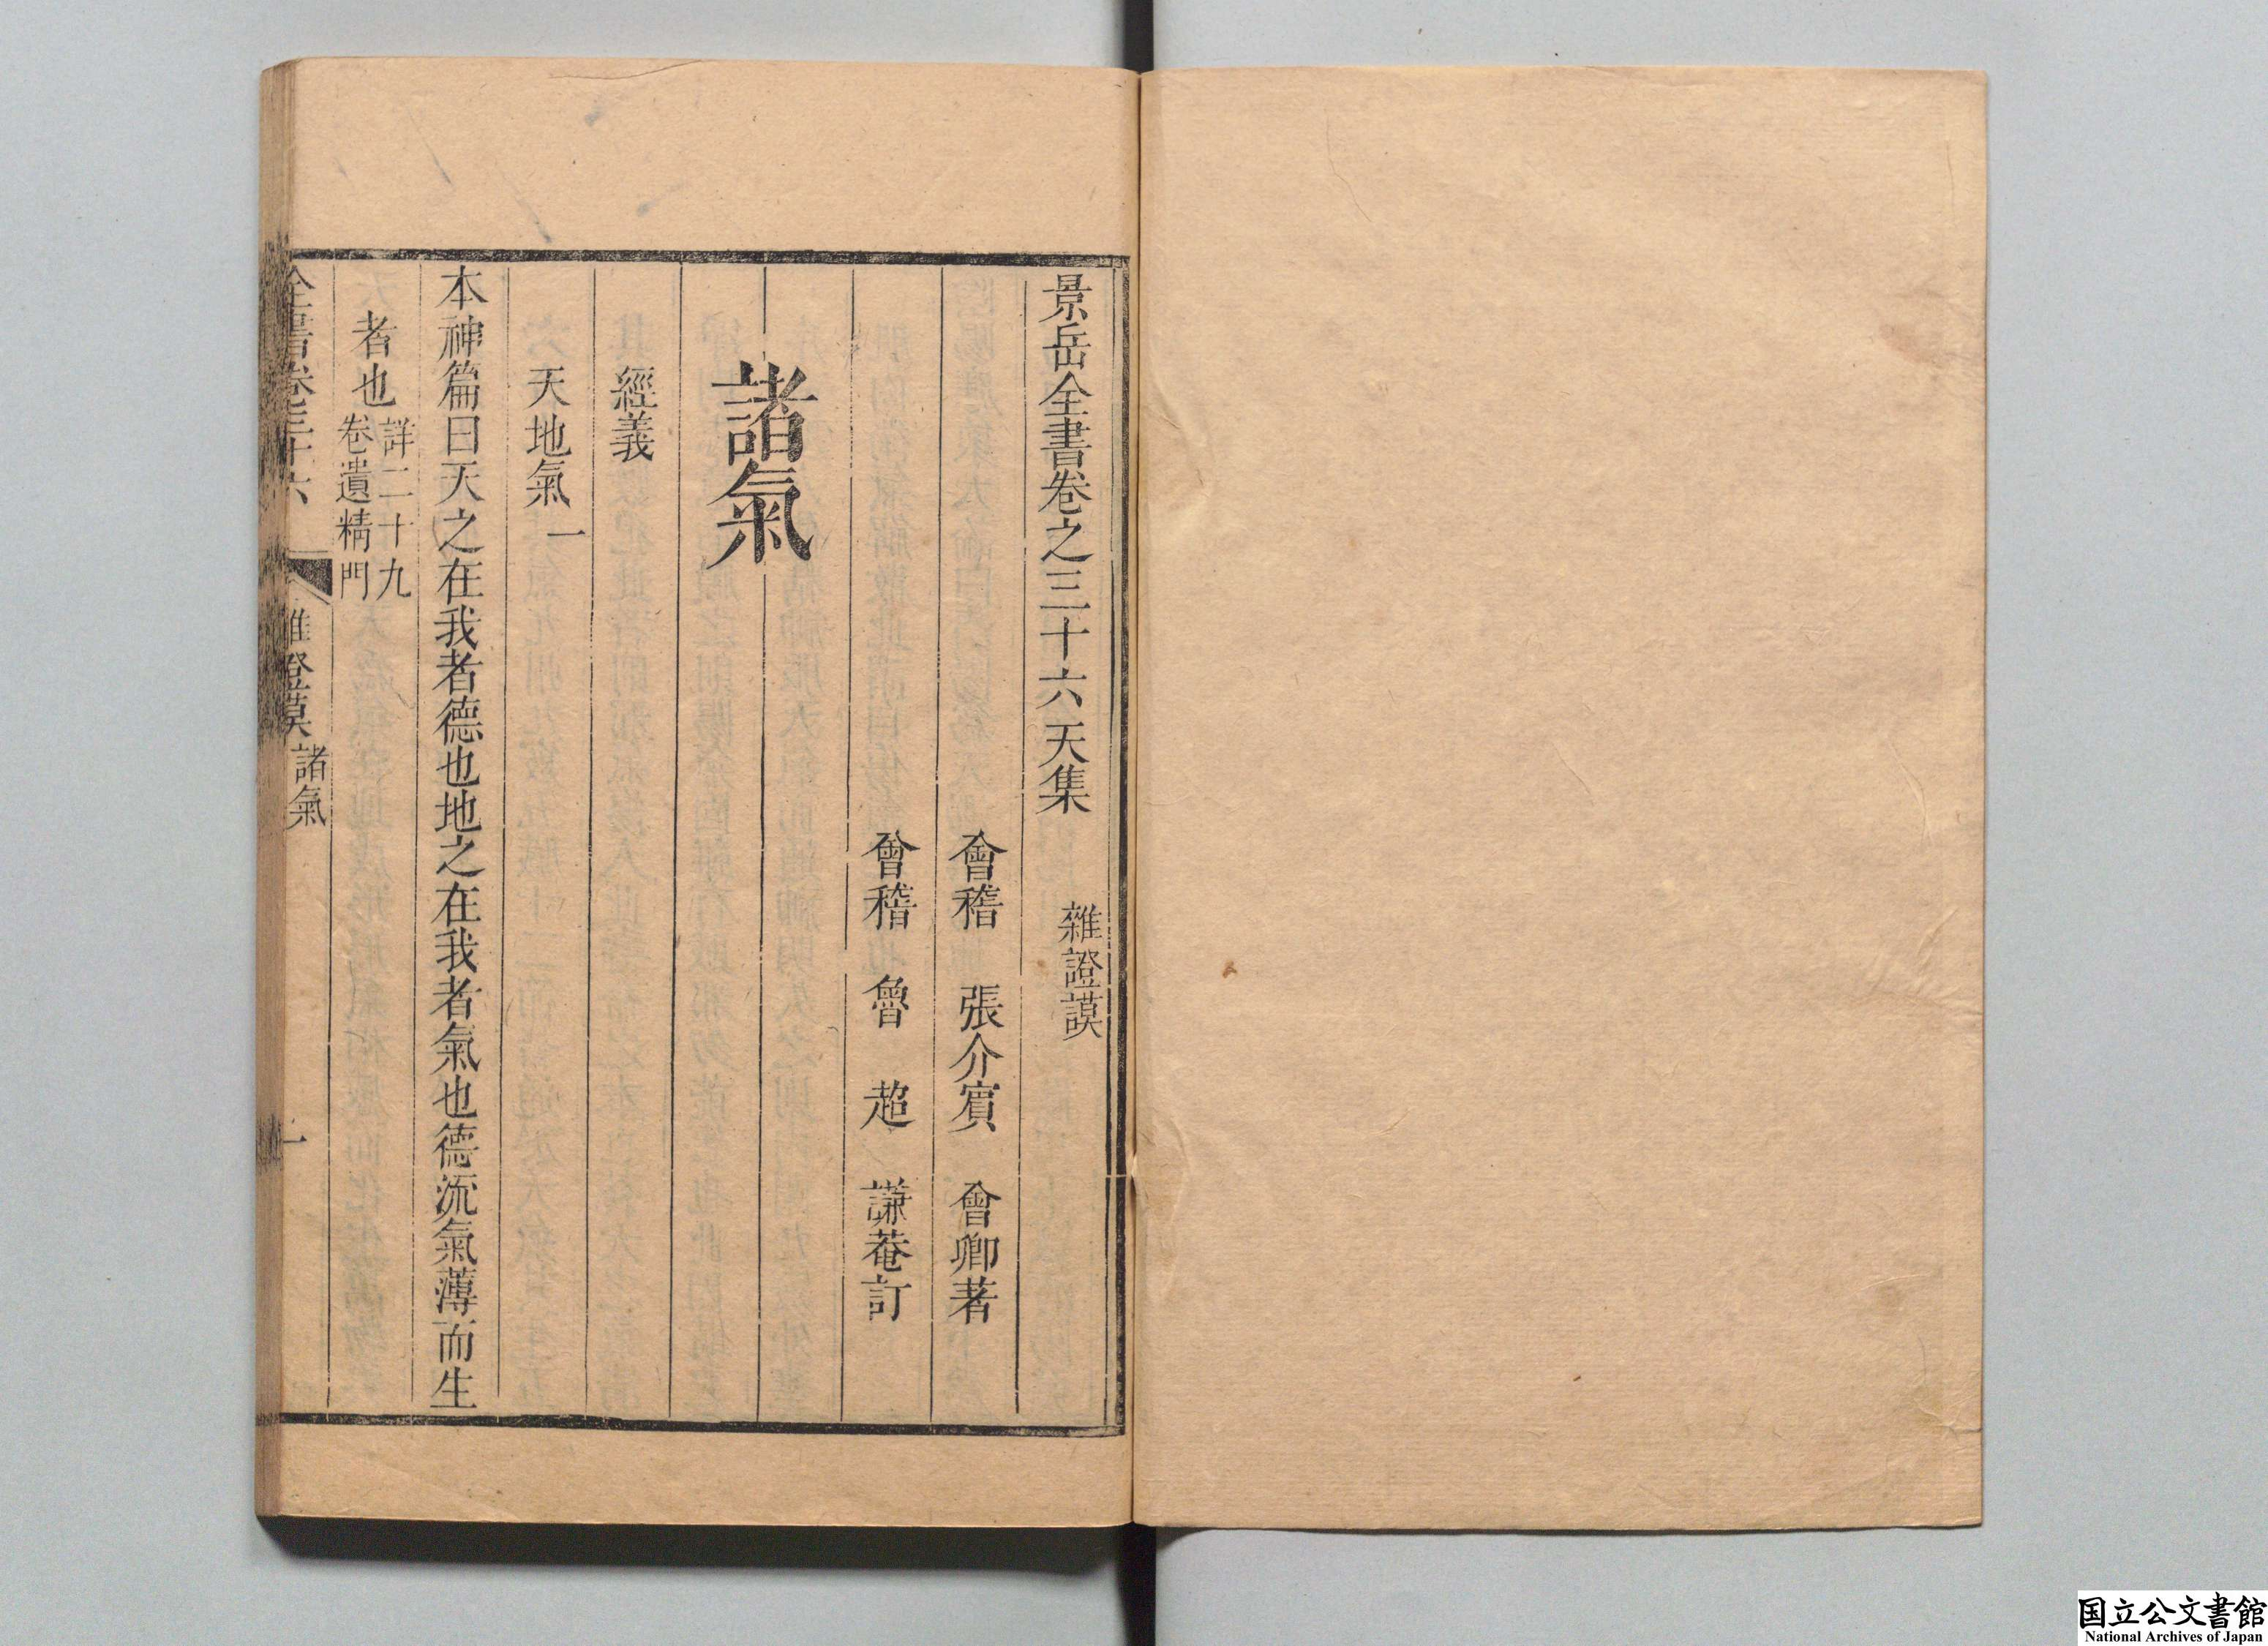 景岳全書卷之三十六天集
雜證謨
會稽 張介賓 會卿著
會稽 魯 超 謙菴訂
諸氣
經義
天地氣一
本神篇曰天之在我者德也地之在我者氣也德流氣薄而生
者也
詳二十九
卷遺精門
全書卷三十六 雜證謨 諸氣 一
国立公文書館
National Archives of Japan